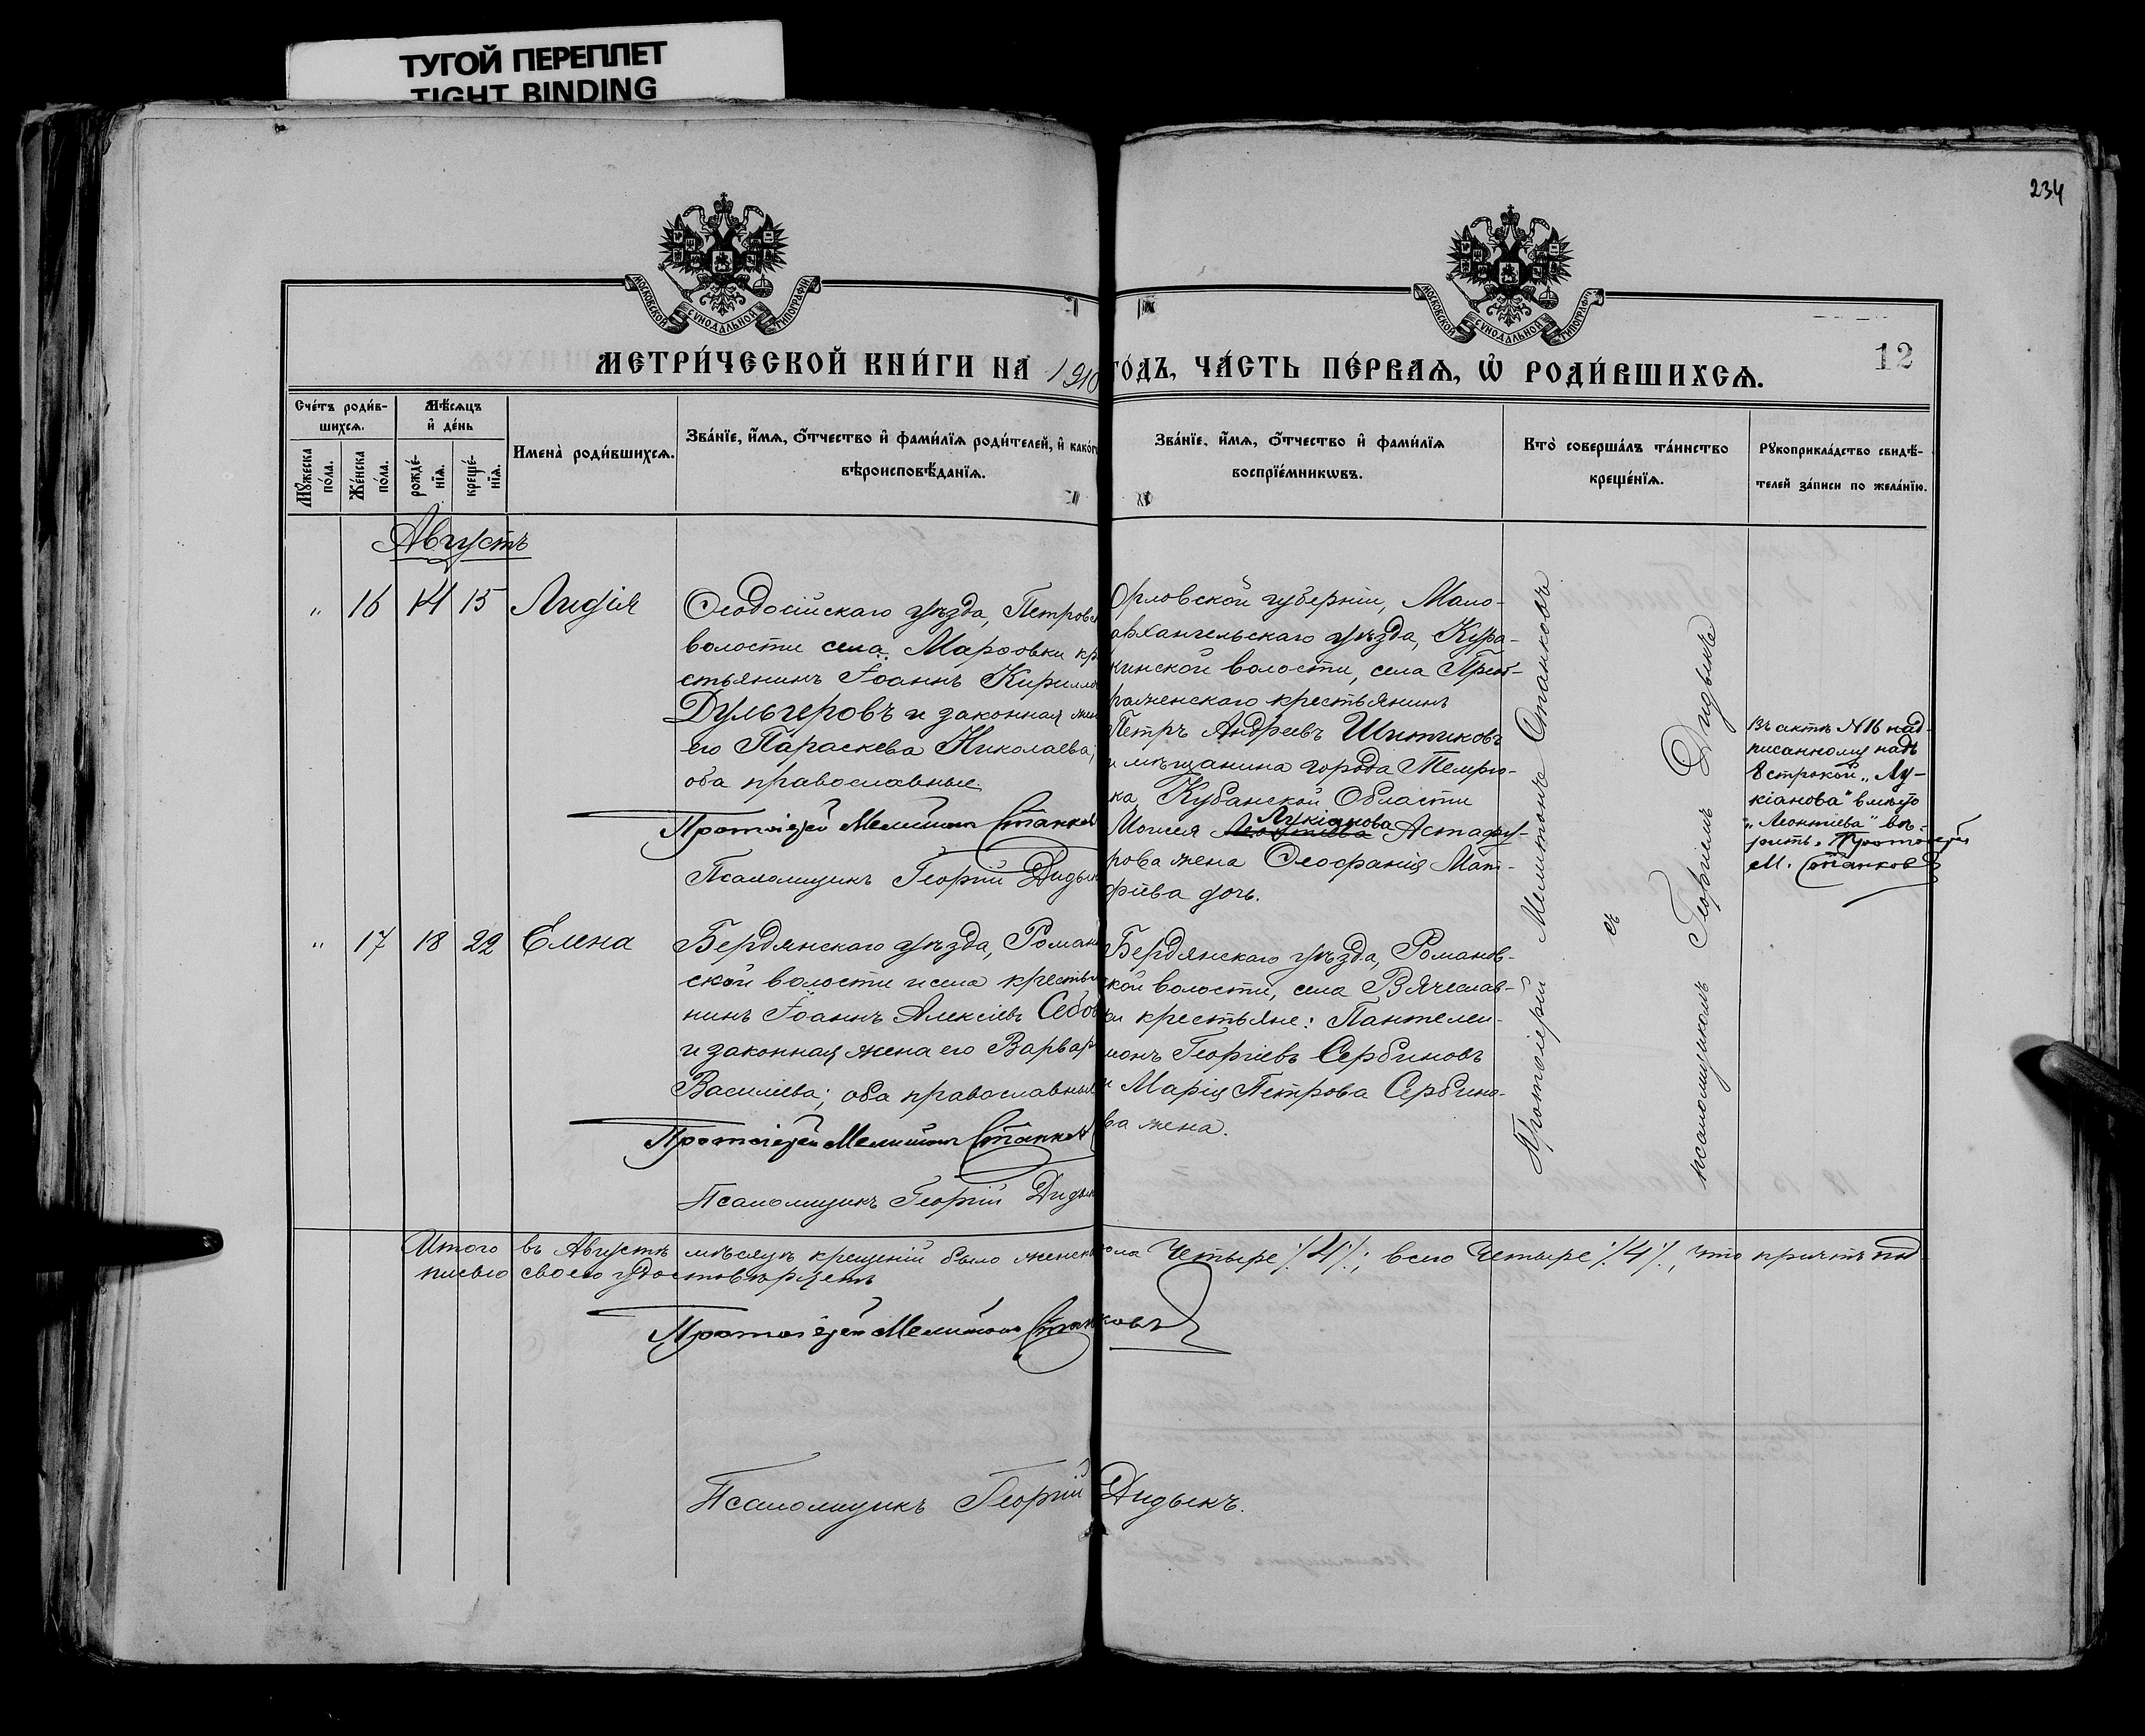 ТУГОЙ ПЕРЕПЛЕТ
TIGHT BINDING
234
МОСКОВСКОЙ СѴНОДАЛЬНОЙ ТИПОГРАФІИ
МОСКОВСКОЙ СѴНОДАЛЬНОЙ ТИПОГРАФІИ
МЕТРИ́ЧЕСКОЙ КНИ́ГИ НА 1910
ГО́ДЪ, ЧА́СТЬ ПЕ́РВАѦ, Ѡ҆ РОДИ́ВШИХСѦ.
12
Сче́тъ роди́в-
шихсѧ.
Мꙋ́жеска по́ла.
Же́нска по́ла.
Мѣ́сѧцъ
и҆ де́нь
рожде́-
нїѧ.
креще́-
нїѧ.
Имена̀ роди́вшихсѧ.
Зва́нїе, и҆́мѧ, ѻ҆́тчество и҆ фами́лїѧ роди́телей, и҆ како́г
вѣроисповѣ́данїѧ.
Зва́нїе, и҆́мѧ, ѻ҆́тчество и҆ фами́лїѧ
воспрїе́мникѡвъ.
Кто̀ соверша́лъ та́инство
креще́нїѧ.
Рꙋкоприкла́дство свидѣ́-
телей за́писи по жела́нїю.
Августъ
" 16 14 15 Лидія
Ѳеодосійскаго уѣзда, Петровс
волости села Марѳовки кр
стьянинъ Іоаннъ Кирилло
Дульгеровъ и законная жен
его Параскева Николаева;
оба православные.
Протоіерей Мелитонъ Станков
Псаломщикъ Георгій Дидык
Орловской губерніи, Мало-
архангельскаго уѣзда, Кура-
кинской волости, села Преоб-
раженскаго крестьянинъ
Петръ Андреевъ Шитиковъ
и мѣщанина города Темрю-
ка, Кубанской Области
Лукіанова
Моисея Леонтіева Астафу-
рова жена Ѳеофанія Мат-
фіева дочь.
Протоіерей Мелитонъ Станковъ
съ
псаломщикомъ Георгіемъ Дидыкъ
Въ актѣ №16 над-
писанному надъ
8 строкой „Лу-
кіанова" вмѣсто
„Леонтіева" вѣ-
рить. Протоіерей
М. Станковъ
" 17 18 22 Елена
Бердянскаго уѣзда, Роман
ской волости и села крестья
нинъ Іоаннъ Алексіевъ Себов
и законная жена его Варвар
Василіева; оба православные
Протоіерей Мелитонъ Станков
Псаломщикъ Георгій Дидык
Бердянскаго уѣзда, Романов-
ской волости, села Вячеслав-
ки крестьяне: Пантелеи-
монъ Георгіевъ Сербиновъ
и Марія Петрова Сербино-
ва жена.
Итого въ Августѣ мѣсяцѣ крещеній было женск пола Четыре /4/; всего Четыре /4/, что причтъ под-
писью своею удостовѣряетъ
Протоіерей Мелитонъ Станковъ
Псаломщикъ Георгій Дидыкъ.